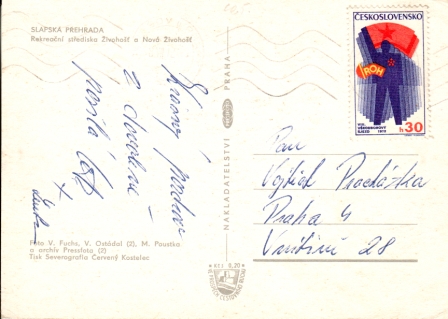 SLAPSKÁ PŘEHRADA
Rekreační střediska Živohošť a Nová Živohošť
Krásný pozdrav
z dovolené
posílá
Foto V. Fuchs, V. Ostádal (2), M. Poustka
a archiv Pressfoto (2)
Tisk Severografia Červený Kostelec
NAKLADATELSTVÍ
PRAHA
ČESKOSLOVENSKO
ROH
VIII.
VŠEODBOROVÝ
SJEZD 1972
h 30
Pan
Vojtěch Procházka
Praha 4
28